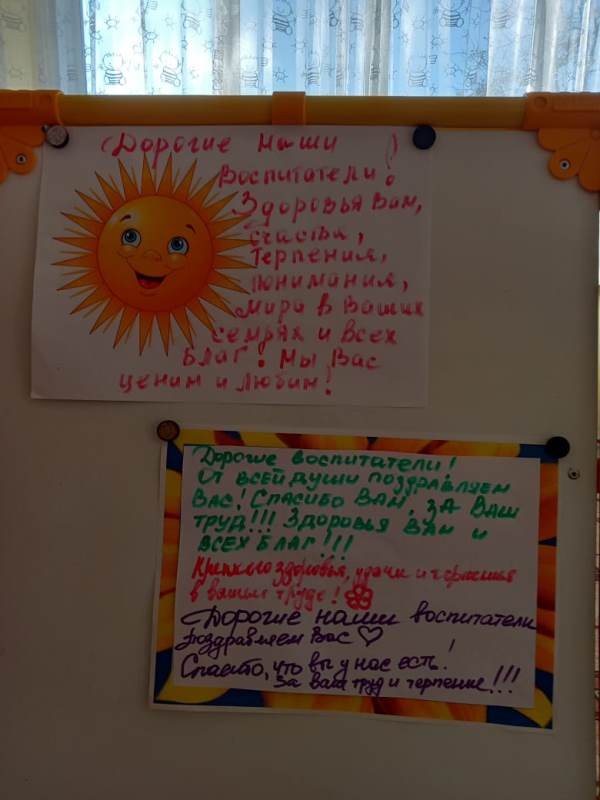 Дорогие наши
Воспитатели!
Здоровья Вам,
счастья,
Терпения,
понимания,
мира в Ваших
семьях и всех
благ! Мы Вас
ценим и любим!
Дорогие воспитатели!
От всей души поздравляем
Вас! Спасибо Вам, за Ваш
труд!!! Здоровья Вам и
всех благ!!!
Крепкого здоровья, удачи и терпения
в вашем труде!
Дорогие наши воспитатели
Поздравляем Вас ♡ !
Спасибо, что вы у нас есть!
За ваш труд и терпение!!!